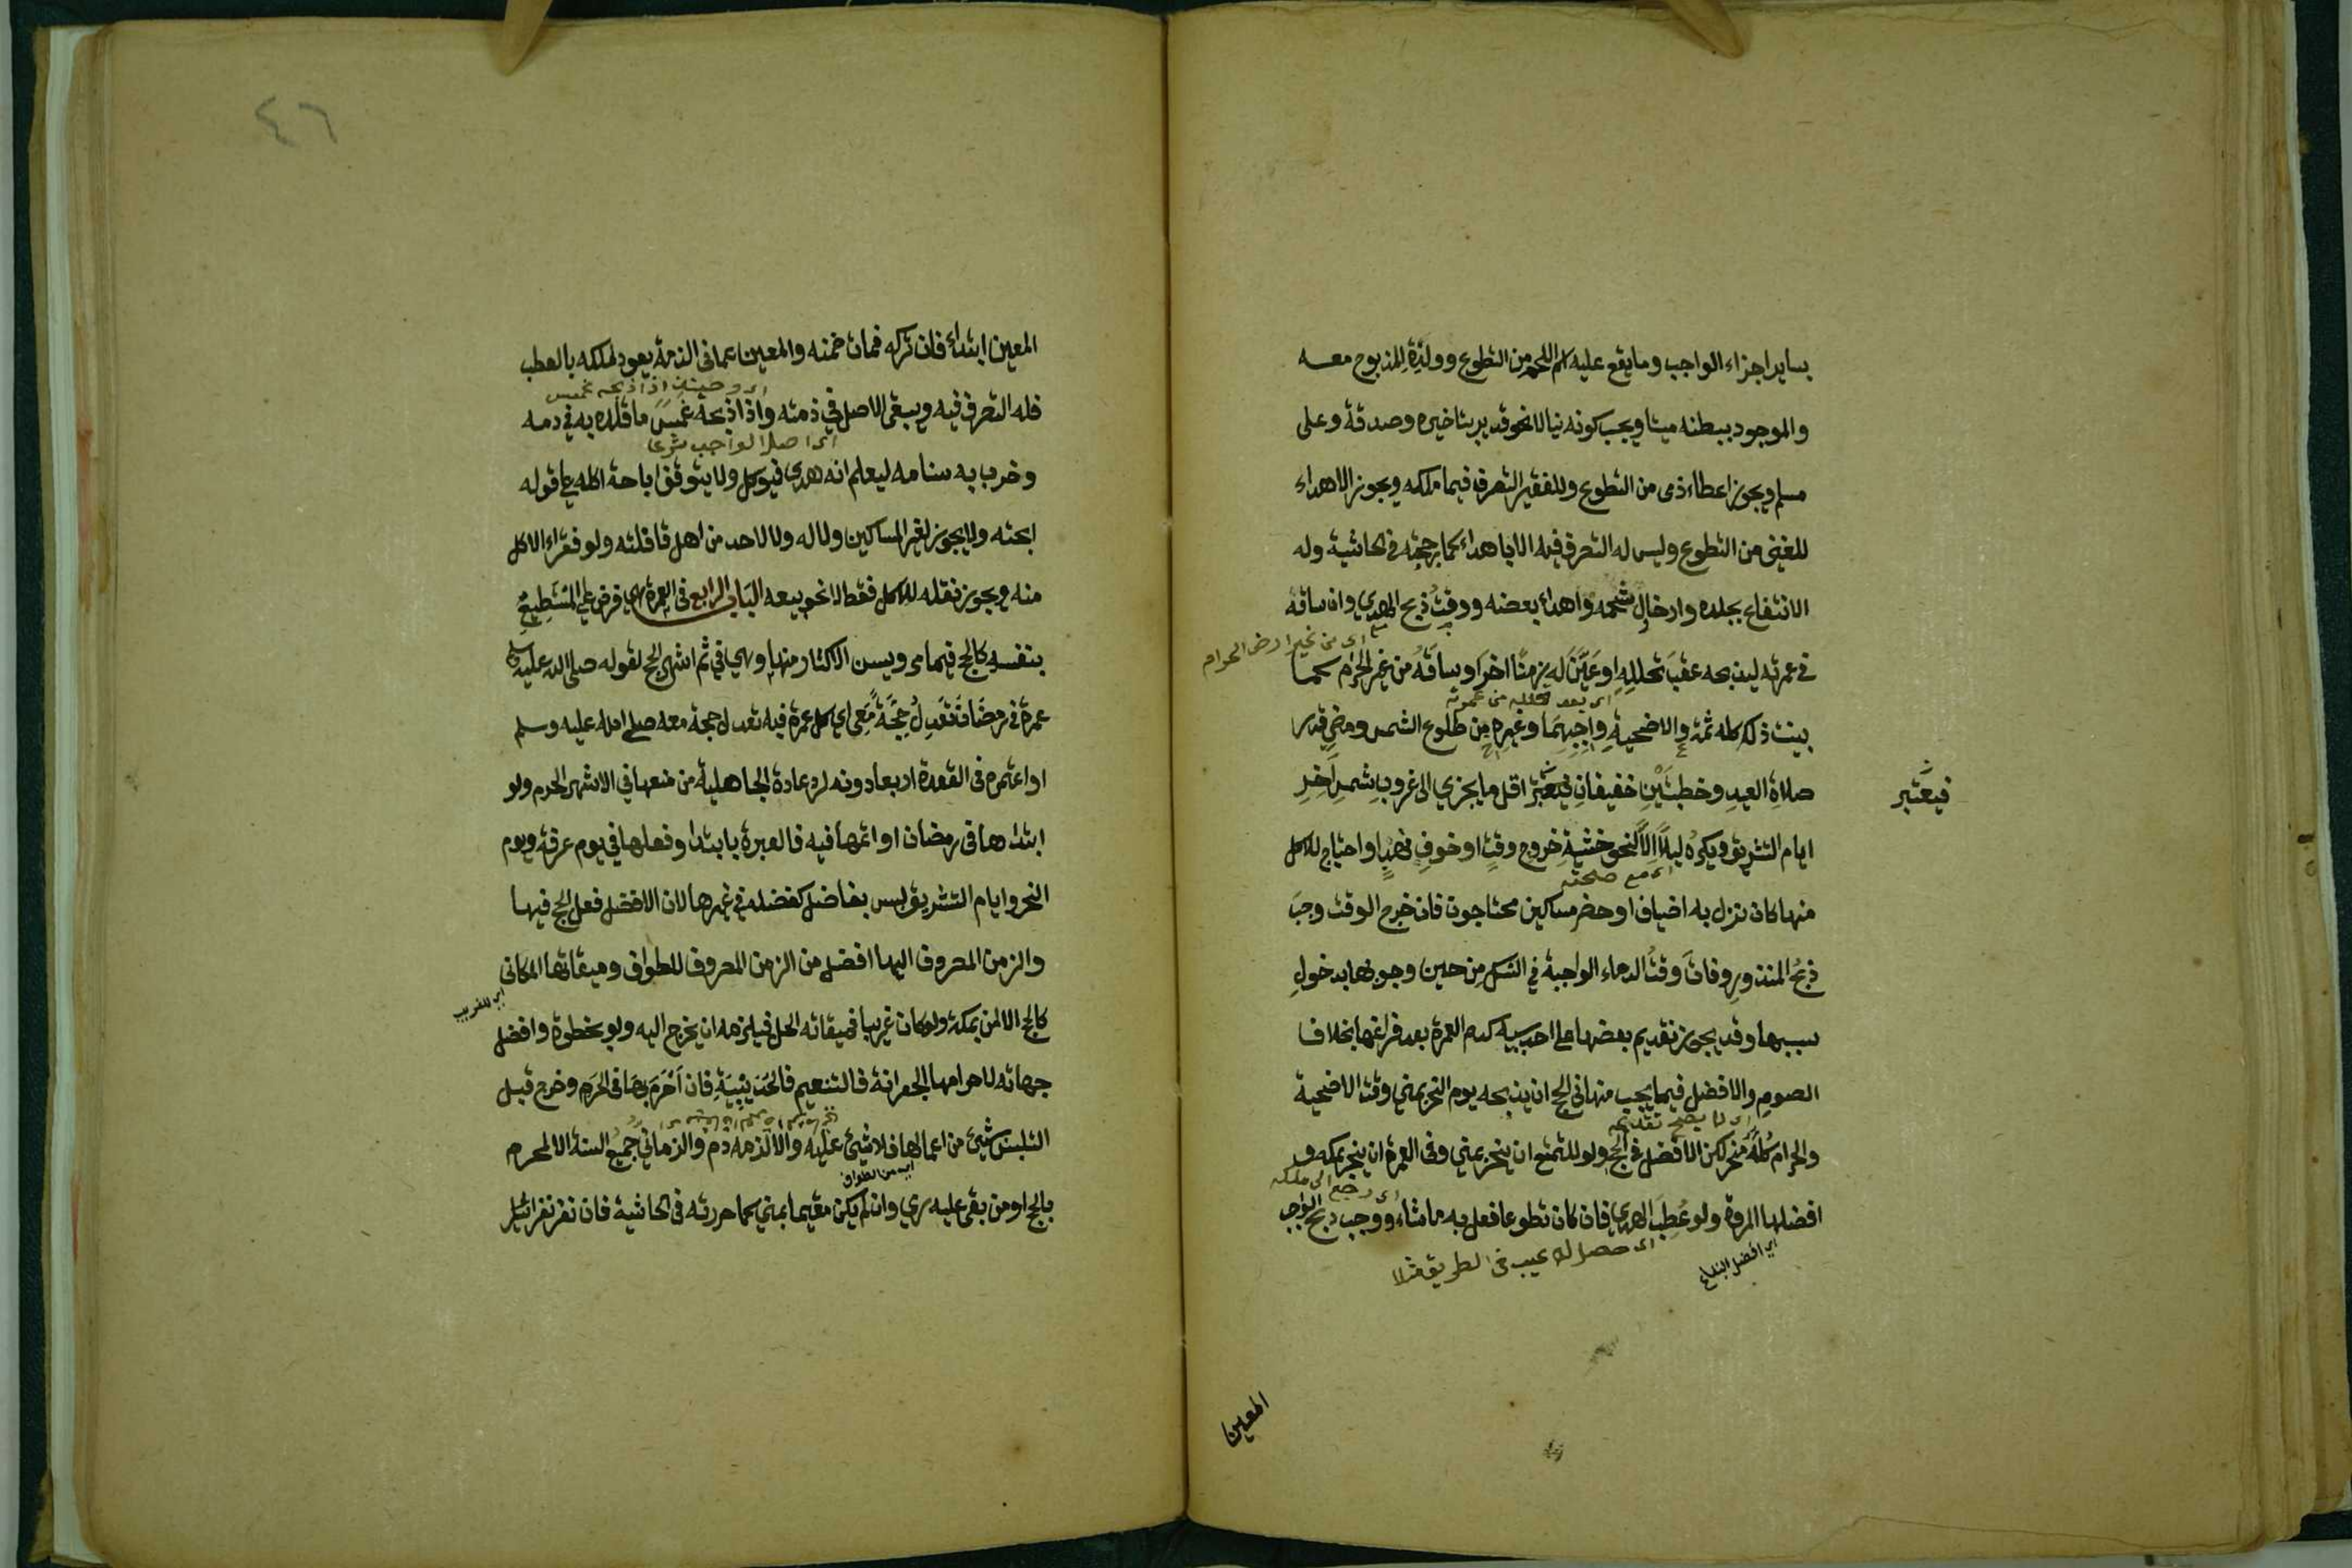 بساير اجزاء الواجب وما يقع عليه اسم اللحم من التطوع وولدة للمذبوح معه
والموجود ببطنه ميتا ويجب كونه نيا لا نحو قديد بتاخيره وصدقة وعلى
مسلم ويجوز اعطاء ذمى من التطوع وللفقير التصرف فيما ملكه ويجوز الاهداء
للغنى من التطوع وليس له التصرف فيه الا باهداء كما رجحته فى الحاشية وله
الانتفاع بجلده وادخال شحمه واهداء بعضه ووقت ذبح الهدي وان ساقه
اى من غير ارض الحرام
فى عمرته ليذبحه عقب تحلله او عين له زمنا اخر او ساقه من غير الحرام كما
اى بعد تحلله من عمرته
بينت ذلك كله ثمة والاضحية واجبهما وغيره من طلوع الشمس ومضي قدر
صلاة العيد وخطبتين خفيفان فيعتبر اقل ما يجزي الى غروب شمس اخر
فيعتبر
ايام التشريق ويكره ليلا الا لنحو خشية خروج وقت او خوف نهب او احتياج للاكل
اى مع صلحته
منها كان نزل به اضياف او حضر مساكين محتاجون فان خرج الوقت وجب
ذبح المنذور وفات وقت الدماء الواجبة في النسك من حين وجوبها بدخول
سببها وقد يجوز تقديم بعضها على احد سببيه كدم العمرة بعد فراغها بخلاف
الصوم والافضل فيما يجب منها في الحج ان يذبحه يوم النحر بمنى وقت الاضحية
اى لا يصح تقديمه
والحرام كله منحر لكن الافضل فى الحج ولو للتمتع ان ينحر بمنى وفى العمرة ان ينحر بمكة و
اى رجع الى ملكه
افضلها المروة ولو عطب الهدي فان كان تطوعا فعل به ما شاء ووجب ذبح الواجب
اي افضل البقاع
اى حصل له عيب فى الطريق مثلا
المعين
٤٦
المعين ابتداء فان تركه فمات ضمنه والمعين عما فى الذمة يعود لملكه بالعطب
اى وحينئذ اذا ذبحه غمس
فله التصرف فيه ويبقى الاصل في ذمته واذا ذبحه غمس ما قلده به في دمه
اى اصل الواجب شرعا
وضرب به سنامه ليعلم انه هدى فيوكل ولا يتوقف اباحة اكله على قوله
ابحته ولا يجوز لغير المساكين ولا له ولا لاحد من اهل قافلته ولو فقراء الاكل
منه ويجوز نقله للاكل فقط لا نحو بيعه الباب الرابع فى العمرة هي فرض على المستطيع
بنفسه كالحج فيما مر ويسن الاكثار منها وهي في ثم اشهر الحج لقوله صلى الله عليه وسلم
عمرة فى رمضان تعدل حجة معى اي كل عمرة فيه تعدل حجة معه صلى الله عليه وسلم
او اعتمره فى القعدة اربعا دونه لرد عادة الجاهلية من منعها في الاشهر الحرم ولو
ابتداها فى رمضان او اتمها فيه فالعبرة بابتدا وفعلها في يوم عرفة ويوم
النحر وايام التشريق ليس بفاضل كفضله في غيرها لان الافضل فعل الحج فيها
والزمن المصروف اليها افضل من الزمن المصروف للطواف وميقاتها المكانى
كالحج الا لمن بمكة ولو كان غريبا فميقاته الحل فيلزمه ان يخرج اليه ولو بخطوة وافضل
اي للغريب
جهاته لاحرامها الجعرانة فالتنعيم فالحديبية فان احرم بها فى الحرم وخرج قبل
التلبس بشيئ من اعمالها فلا شيئ عليه والا لزمه دم والزماني جميع السنة الا لمحرم
اي من الطواف
بالحج او من بقى عليه رمي وان لم يكن مقيما بمني كما حررته فى الحاشية فان نفر نفرا